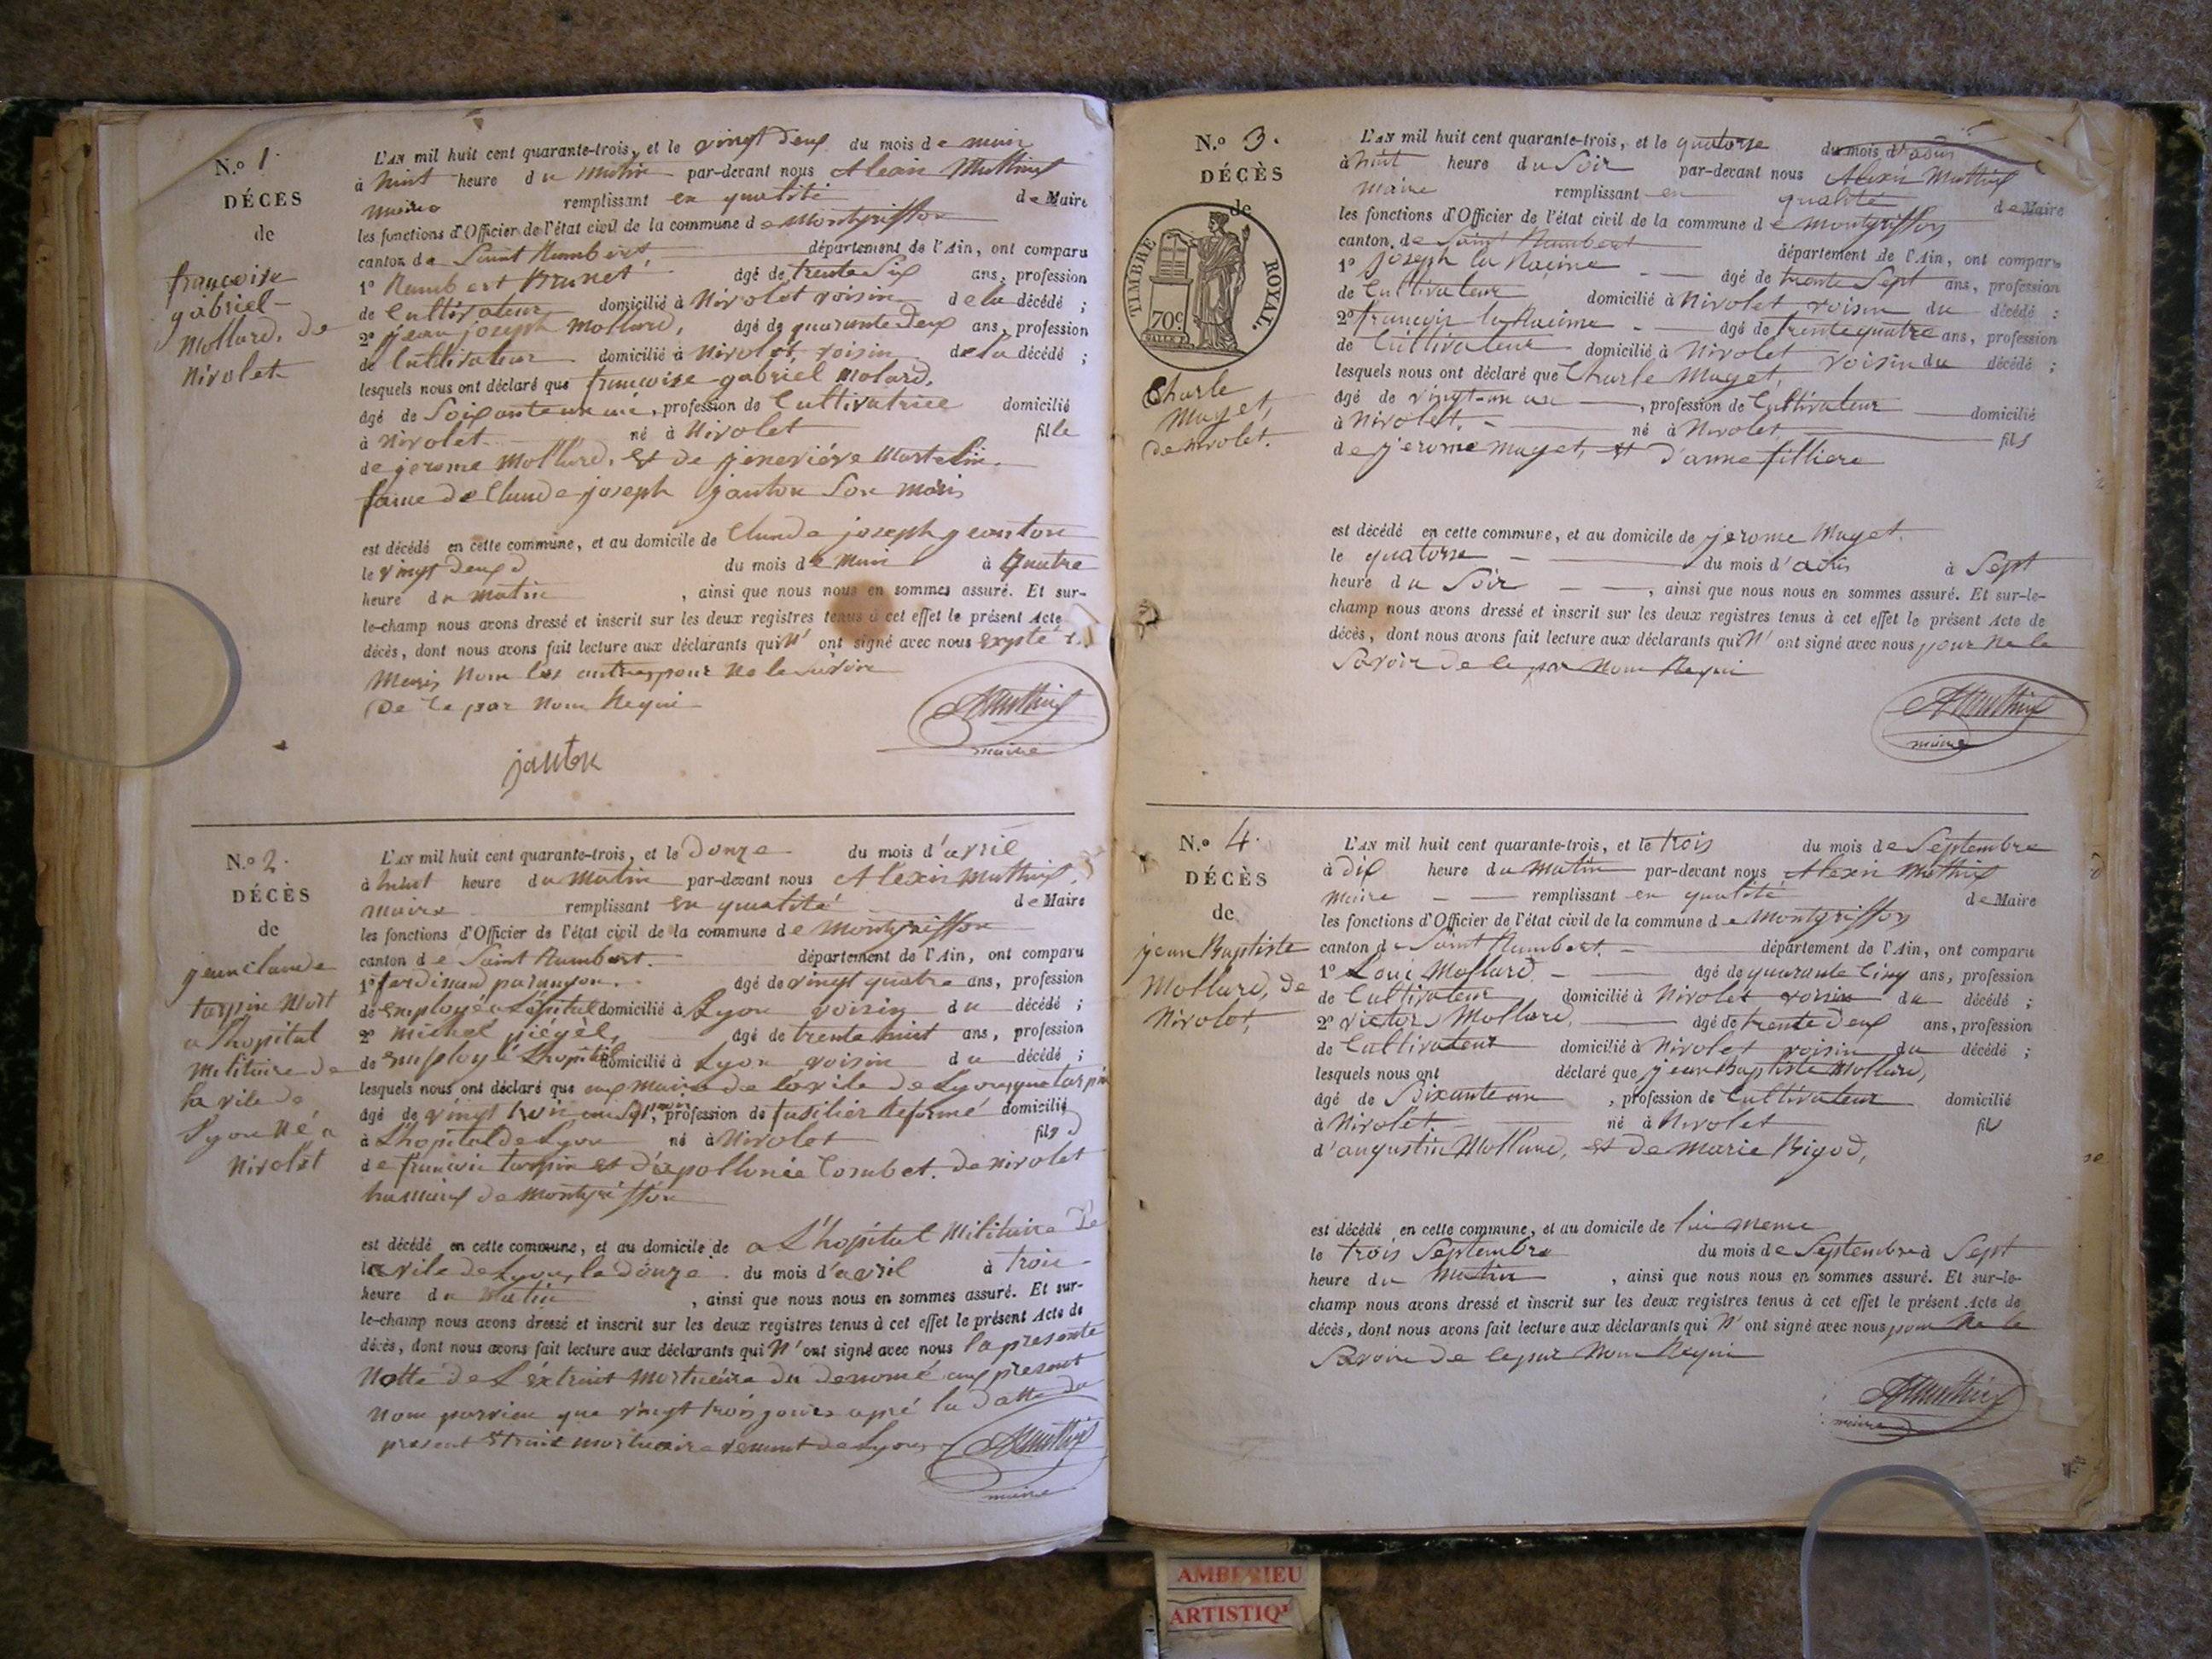 N.o 1.
DÉCÈS
de
françoise
gabriel
Mollard, de
Nivolet
L'AN mil huit cent quarante-trois, et le vingt deux du mois de
à huit heure du matin par-devant nous Mathieu
remplissant en qualité de Maire
les fonctions d'Officier de l'état civil de la commune de Montgriffon
canton de Saint Rambert, département de l'Ain, ont comparu
1º Rambert Brunet âgé de trente Six ans, profession
de Cultivateur domicilié à Nivolet voisin de la décédé ;
2º jean joseph Mollard, âgé de quarante deux ans, profession
de Cultivateur domicilié à Nivolet, voisin de la décédé ;
lesquels nous ont déclaré que françoise gabriel Molard,
âgé de , profession de Cultivatrice domicilié
à Nivolet né à Nivolet fille
de jerome Mollard, et de jeneviéve Martelin
fame de Claude joseph janton Son
est décédé en cette commune, et au domicile de Claude joseph geanton
le vingt deux du mois de à Quatre
heure du matin , ainsi que nous nous en sommes assuré. Et sur-
le-champ nous avons dressé et inscrit sur les deux registres tenus à cet effet le présent Acte
décès, dont nous avons fait lecture aux déclarants qui N' ont signé avec nous
les autres pour ne le savoir
De ce par Nous Requi
Mathieu
maire
janton
N.o 2.
DÉCÈS
de
jean claude
tarpin Mort
a Lhopital
Militaire de
la vile de
Lyon Né a
Nivolet
L'AN mil huit cent quarante-trois, et le Douze du mois d'avril
à heure du Matin par-devant nous Alexis Mathieu,
maire remplissant en qualité de Maire
les fonctions d'Officier de l'état civil de la commune de Montgriffon
canton de Saint Rambert. département de l'Ain, ont comparu
1º ferdinand âgé de vingt quatre ans, profession
de Employé a domicilié à Lyon voisin du décédé ;
2º michel âgé de trente huit ans, profession
de domicilié à Lyon voisin du décédé ;
lesquels nous ont déclaré que de la vile de Lyon, que tarpin
âgé de vingt trois , profession de fusilier Reformé domicilié
à Lhopital de Lyon né à Nivolet fils
de francois tarpin et d'apollonie Combet. de nivolet
de Montgriffon
est décédé en cette commune, et au domicile de a L'hopital Militaire De
la vile de Lyon, le douze. du mois d'avril à trois
heure du Matin , ainsi que nous nous en sommes assuré. Et sur-
le-champ nous avons dressé et inscrit sur les deux registres tenus à cet effet le présent Acte de
décès, dont nous avons fait lecture aux déclarants qui N' ont signé avec nous la presente
Notte de L'extrait Mortuaire du denomé present
Nous que vingt trois jours apré la datte du
present mortuaire venant de Lyon
Mathieu
maire
N.o 3.
DÉCÈS
de
TIMBRE ROYAL.
70c
Charle
Muget,
de nivolet.
L'AN mil huit cent quarante-trois, et le quatorse du mois d'aous
à huit heure du Soir par-devant nous Alexis Mathieu
Maire remplissant en qualité de Maire
les fonctions d'Officier de l'état civil de la commune de Montgriffon
canton de Saint Rambert département de l'Ain, ont comparu
1º joseph la Racine âgé de trente Sept ans, profession
de Cultivateur domicilié à Nivolet voisin du décédé ;
2º francois la Racine âgé de trente quatre ans, profession
de Cultivateur domicilié à Nivolet voisin du décédé ;
lesquels nous ont déclaré que Charle Muget,
âgé de vingt-un an , profession de Cultivateur domicilié
à Nivolet. né à Nivolet, fils
de jerome Muget, et d'anne filliere
est décédé en cette commune, et au domicile de jerome Muget.
le quatorse du mois d'aous à Sept
heure du Soir , ainsi que nous nous en sommes assuré. Et sur-le-
champ nous avons dressé et inscrit sur les deux registres tenus à cet effet le présent Acte de
décès, dont nous avons fait lecture aux déclarants qui N' ont signé avec nous pour ne le
Savoir de ce par Nous Requi
Mathieu
maire
N.o 4.
DÉCÈS
de
jean Baptiste
Mollard, de
Nivolet,
L'AN mil huit cent quarante-trois, et le trois du mois de Septembre
à dix heure du Matin par-devant nous Alexis Mathieu
Maire remplissant en qualité de Maire
les fonctions d'Officier de l'état civil de la commune de Montgriffon
canton de Saint Rambert. département de l'Ain, ont comparu
1º Loui Mollard âgé de quarante Cinq ans, profession
de Cultivateur domicilié à Nivolet voisin du décédé ;
2º victor Mollard, âgé de trente deux ans, profession
de Cultivateur domicilié à Nivolet voisin du décédé ;
lesquels nous ont déclaré que jean Baptiste Mollard,
âgé de Soixante an , profession de Cultivateur domicilié
à Nivolet né à Nivolet fils
d'augustin Mollard, et de Marie Rigod,
est décédé en cette commune, et au domicile de lui meme
le trois Septembre du mois de Septembre à Sept
heure du Matin , ainsi que nous nous en sommes assuré. Et sur-le-
champ nous avons dressé et inscrit sur les deux registres tenus à cet effet le présent Acte de
décès, dont nous avons fait lecture aux déclarants qui N' ont signé avec nous pour ne le
Savoir de ce par Nous Requi
Mathieu
maire
AMBERIEU
ARTISTIQ